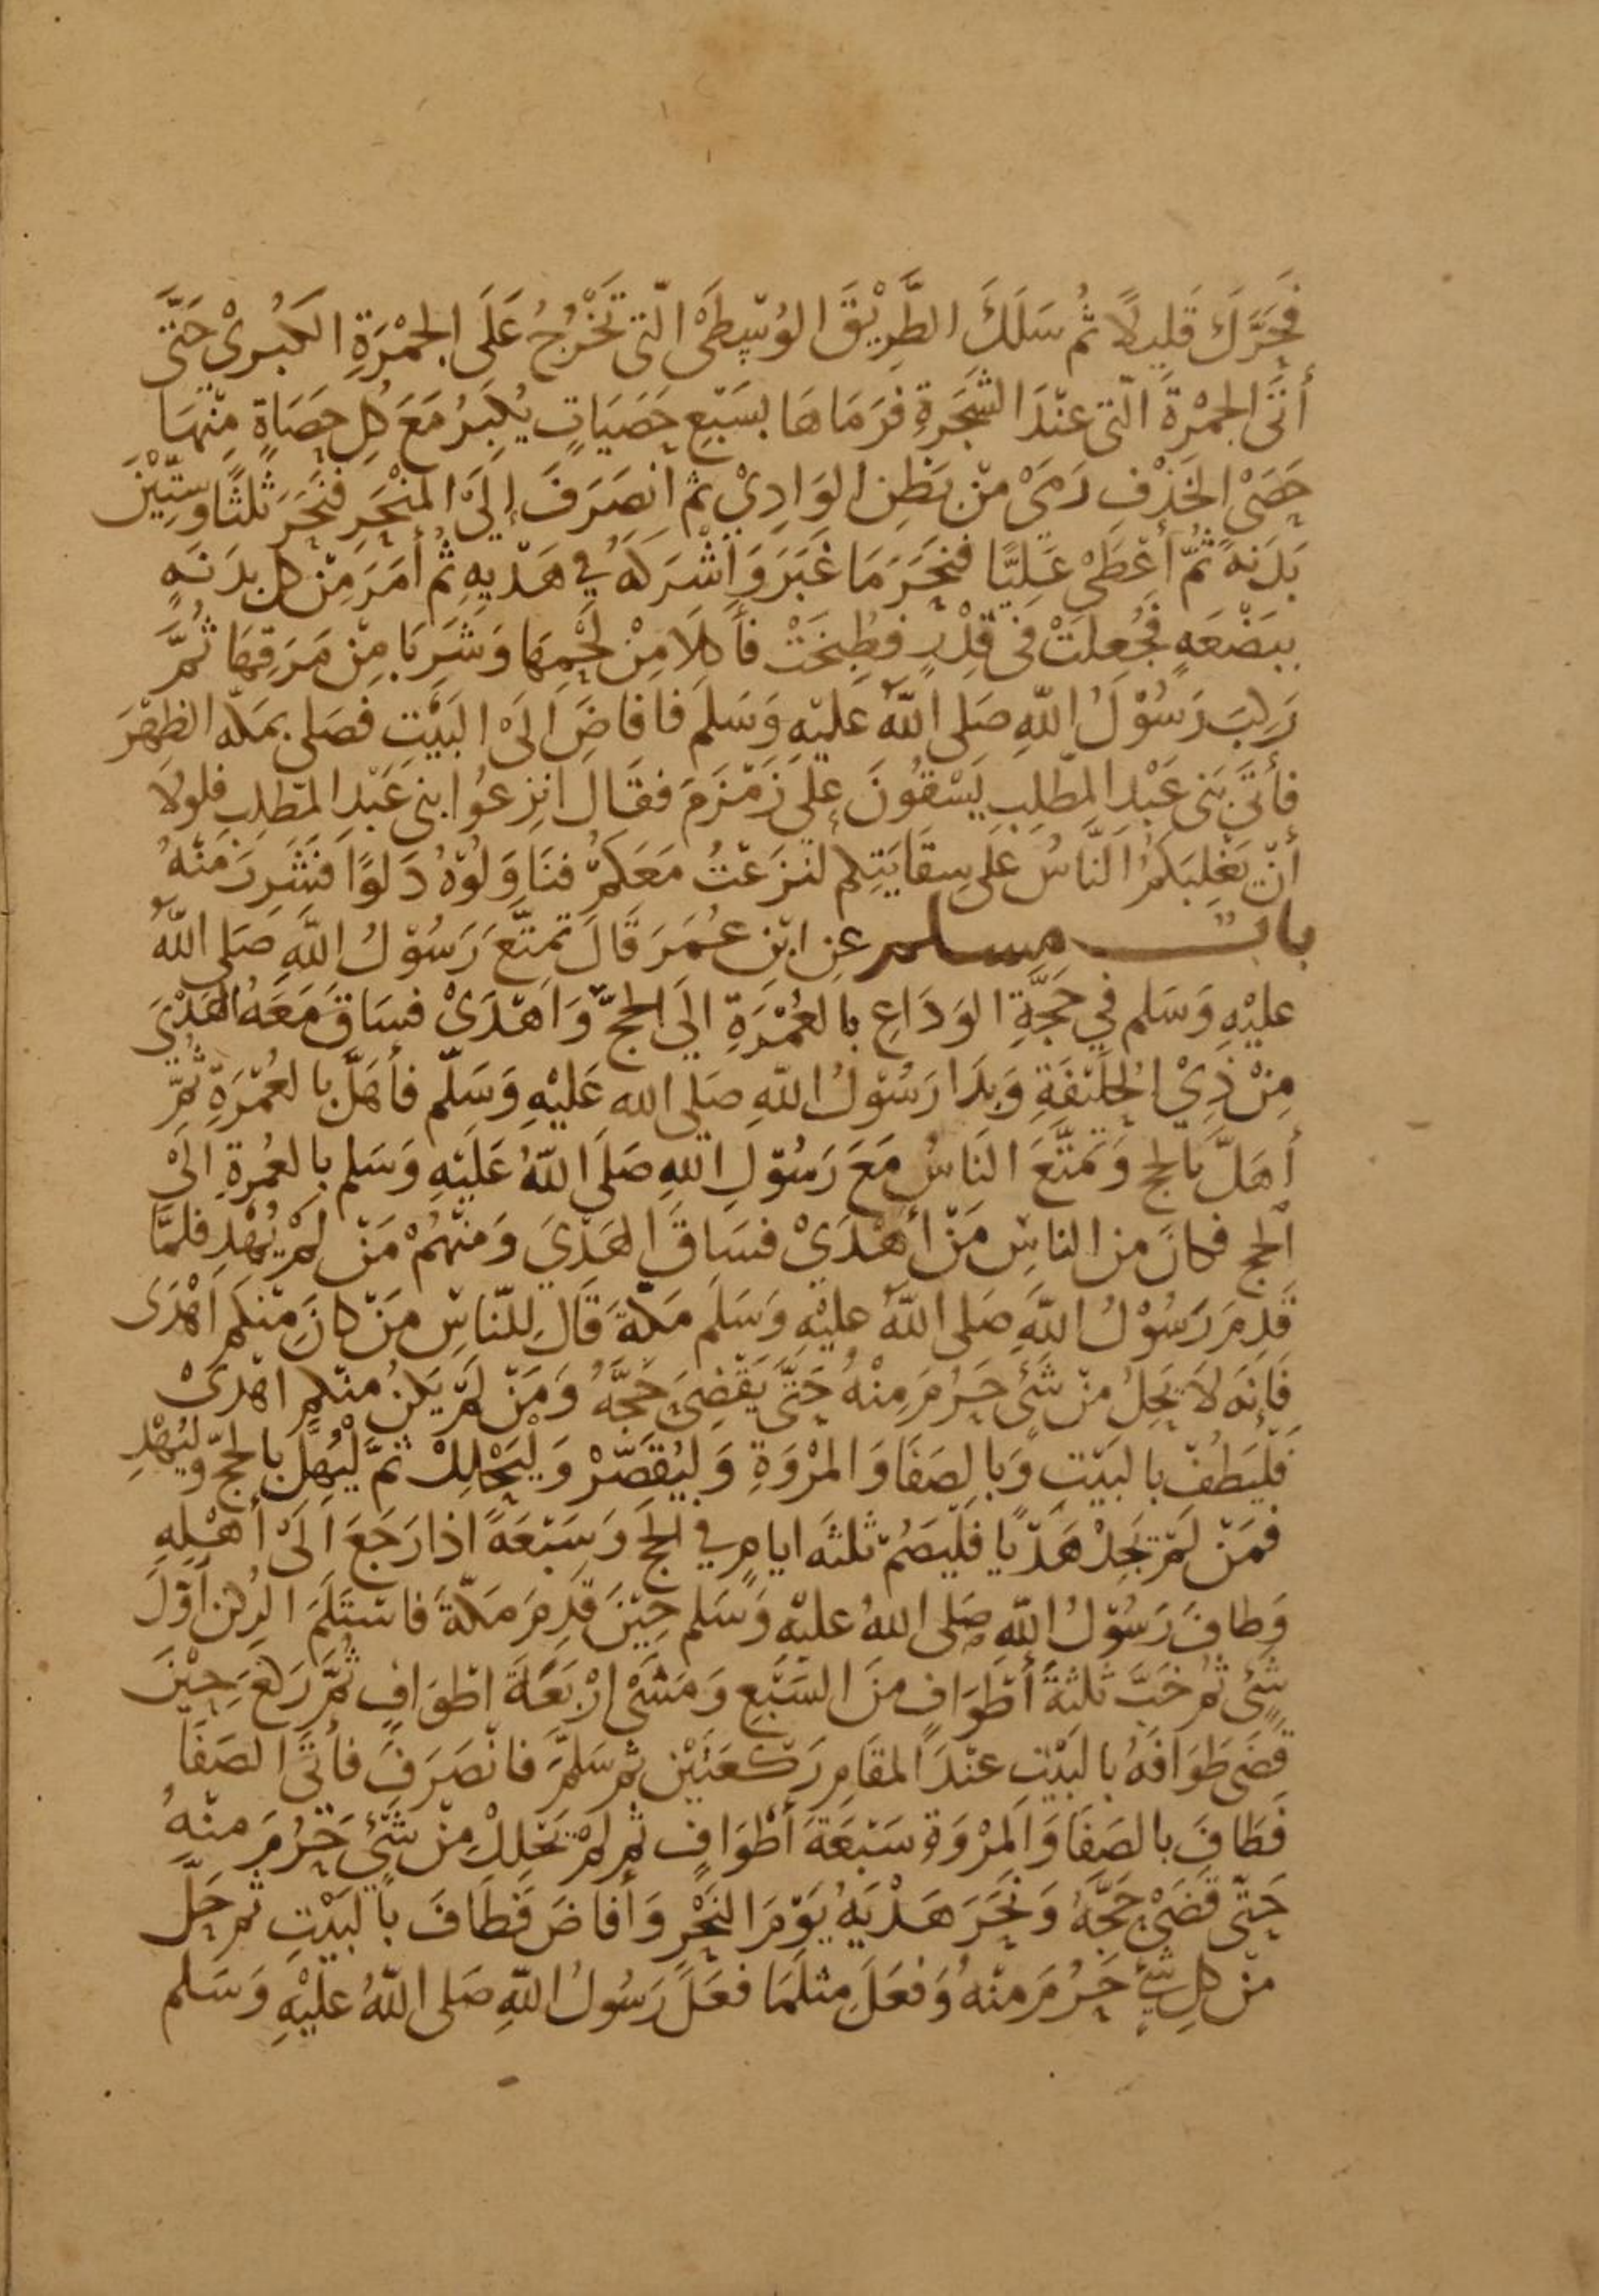 فَحَرَّكَ قَلِيلًا ثُم سَلَكَ الطَّرِيْقَ الوُسْطَىْ الّتى تَخْرُجُ عَلَى الجمْرَةِ الكُبرىْ حَتَّى
أتَى الجمْرَةَ الّتى عنْدَ الشَجَرةِ فرَمَاهَا بسَبْعِ حَصَيَاتٍ يُكبِرُ مَعَ كُلِ حصَاةٍ مِنْهَا
حَصَىْ الخَذْفِ رَمىْ منْ بَطْنِ الوَادِيْ ثم انصَرَفَ إلىَ المنْحَرِ فنَحَرَ ثلثًا وَسِتّيْنَ
بَدَنهً ثُمّ أعْطَىْ عَليًّا فنحَرَ مَا غَبَرَ وَأشْرَكَهُ في هَدْيِهِ ثُم أمَرَ مِنْ كل بدَنَهٍ
ببَضْعَهٍ فجُعِلتْ فى قِدْرٍ فطُبِخَتْ فأكلَا مِنْ لَحْمِهَا وَشَرِبَا مِنْ مَرَقِهَا ثُمَّ
رَكِبَ رَسُوْلُ اللهِ صَلى اللهُ عَليْهِ وَسَلمَ فافاضَ الَىْ البَيْتِ فصَلى بمَكه الظهْرَ
فأتَى بَنى عَبْدِ المطّلِبِ يَسْقُونَ على زَمْزَمَ فقَال انزِعُوا بنى عَبْدِ المطّلِبِ فلولاَ
أنْ يَغْلِبَكمُ النَّاسُ عَلى سِقَايَتِكم لنَزَعْتُ مَعَكمْ فنَاوَلُوْهُ دَلوًا فشَرِبَ منْهُ
باب مسلم عنِ ابْنِ عُمَرَ قَالَ تَمتَّعَ رَسُوْلُ اللهِ صَلى اللهُ
عليْهِ وَسَلم في حَجَّةِ الوَدَاعِ بالعُمْرَةِ الَى الحجّ وَاهْدَىْ فسَاقَ مَعَهُ الهَدْيَ
مِنْ ذِيْ الحلَيْفَةِ وَبدَا رَسُوْلُ اللهِ صَلى الله عَليْهِ وَسَلّم فأهَلَّ بالعُمْرَةِ ثُمَّ
أهَلَّ بالحج وَتمَتَّعَ النَاسُ مَعَ رَسُوْلِ اللهِ صَلَى اللهُ عَليْهِ وَسَلم بالعُمْرةِ الىَْ
الحج فكانَ من الناسِ مَنْ أهْدَىْ فسَاقَ الهَدْيَ وَمنْهُمْ مَنْ لمْ يُهْدِ فلمَّا
قَدِمَ رَسُوْلُ اللهِ صَلى اللهُ عليْهِ وَسَلَم مَكّةَ قَالَ للنّاسِ مَنْ كانَ منْكم اَهْدَى
فَإنهَ لاَ يحَِلُ منْ شَئٍ حَرُمَ مِنْهُ حَتَّى يَقْضِىَ حَجَّهُ وَمَنْ لمْ يَكنْ منكم اهْدَىْ
فلْيَطُفْ بالبَيْتِ وَبالصَفَا وَالمرْوَةِ وَليُقَصّرْ وَليَحْلِلْ ثمَّ لْيُهِلَّ بالحجّ وَليُهْدِ
فمَنْ لَمْ يَجِدْ هَدْيًا فليَصُمْ ثلثَه ايامٍ في الحج وَسَبْعَةً اذا رَجَعَ الَىْ أهْلِهِ
وَطافَ رَسُوْلُ اللهِ صَلى اللهُ عليْهِ وَسَلم حِيْنَ قدِمَ مَكّةَ فاسْتلَمَ الرُكنَ أوّلَ
شئٍ ثم خَبَّ ثلثةَ أطْوَافٍ منَ السَبْعِ وَمَشَىْ ارْبَعَةَ اطوَافٍ ثُمَّ رَكعَ حِيْنَ
قضَى طوَافَهُ بالبَيْتِ عنْدَ المقَامِ رَكعَتَيْنِ ثم سَلمَّ فانْصَرَفَ فأتَى الصَفَا
فَطَافَ بالصَفَا وَالمرْوَةِ سَبْعَةَ أطْوَافٍ ثم لمْ يَحْلِلْ مِنْ شَئٍ حَرُمَ منْهُ
حَتّى قَضَىْ حَجَّهُ وَنحَرَ هَدْيَهُ يَوْمَ النَحْرِ وَأفاضَ فَطَافَ بالبَيْتِ ثم حَلَّ
منْ كلِ شَئٍ حَرُمَ منْهُ وَفعَلَ مثلَمَا فعَلَ رَسُولُ اللهِ صَلى اللهُ عليْهِ وَسَلم